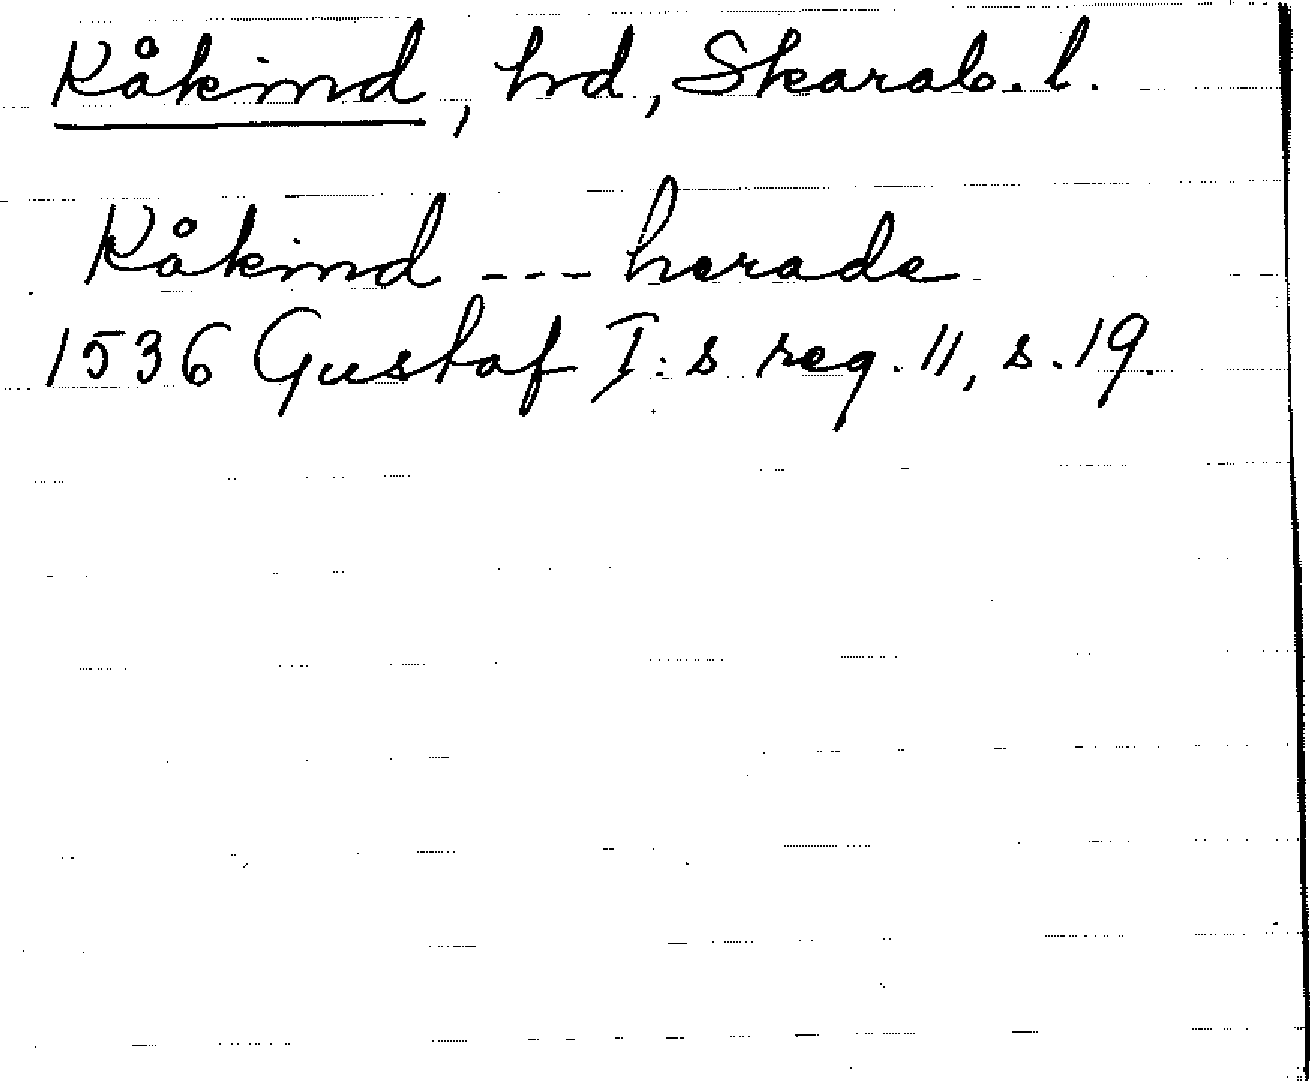 Kåkind, hd, Skarab. l.
Kåkind --- herade
1536 Gustaf I:s reg. 11, s. 19.